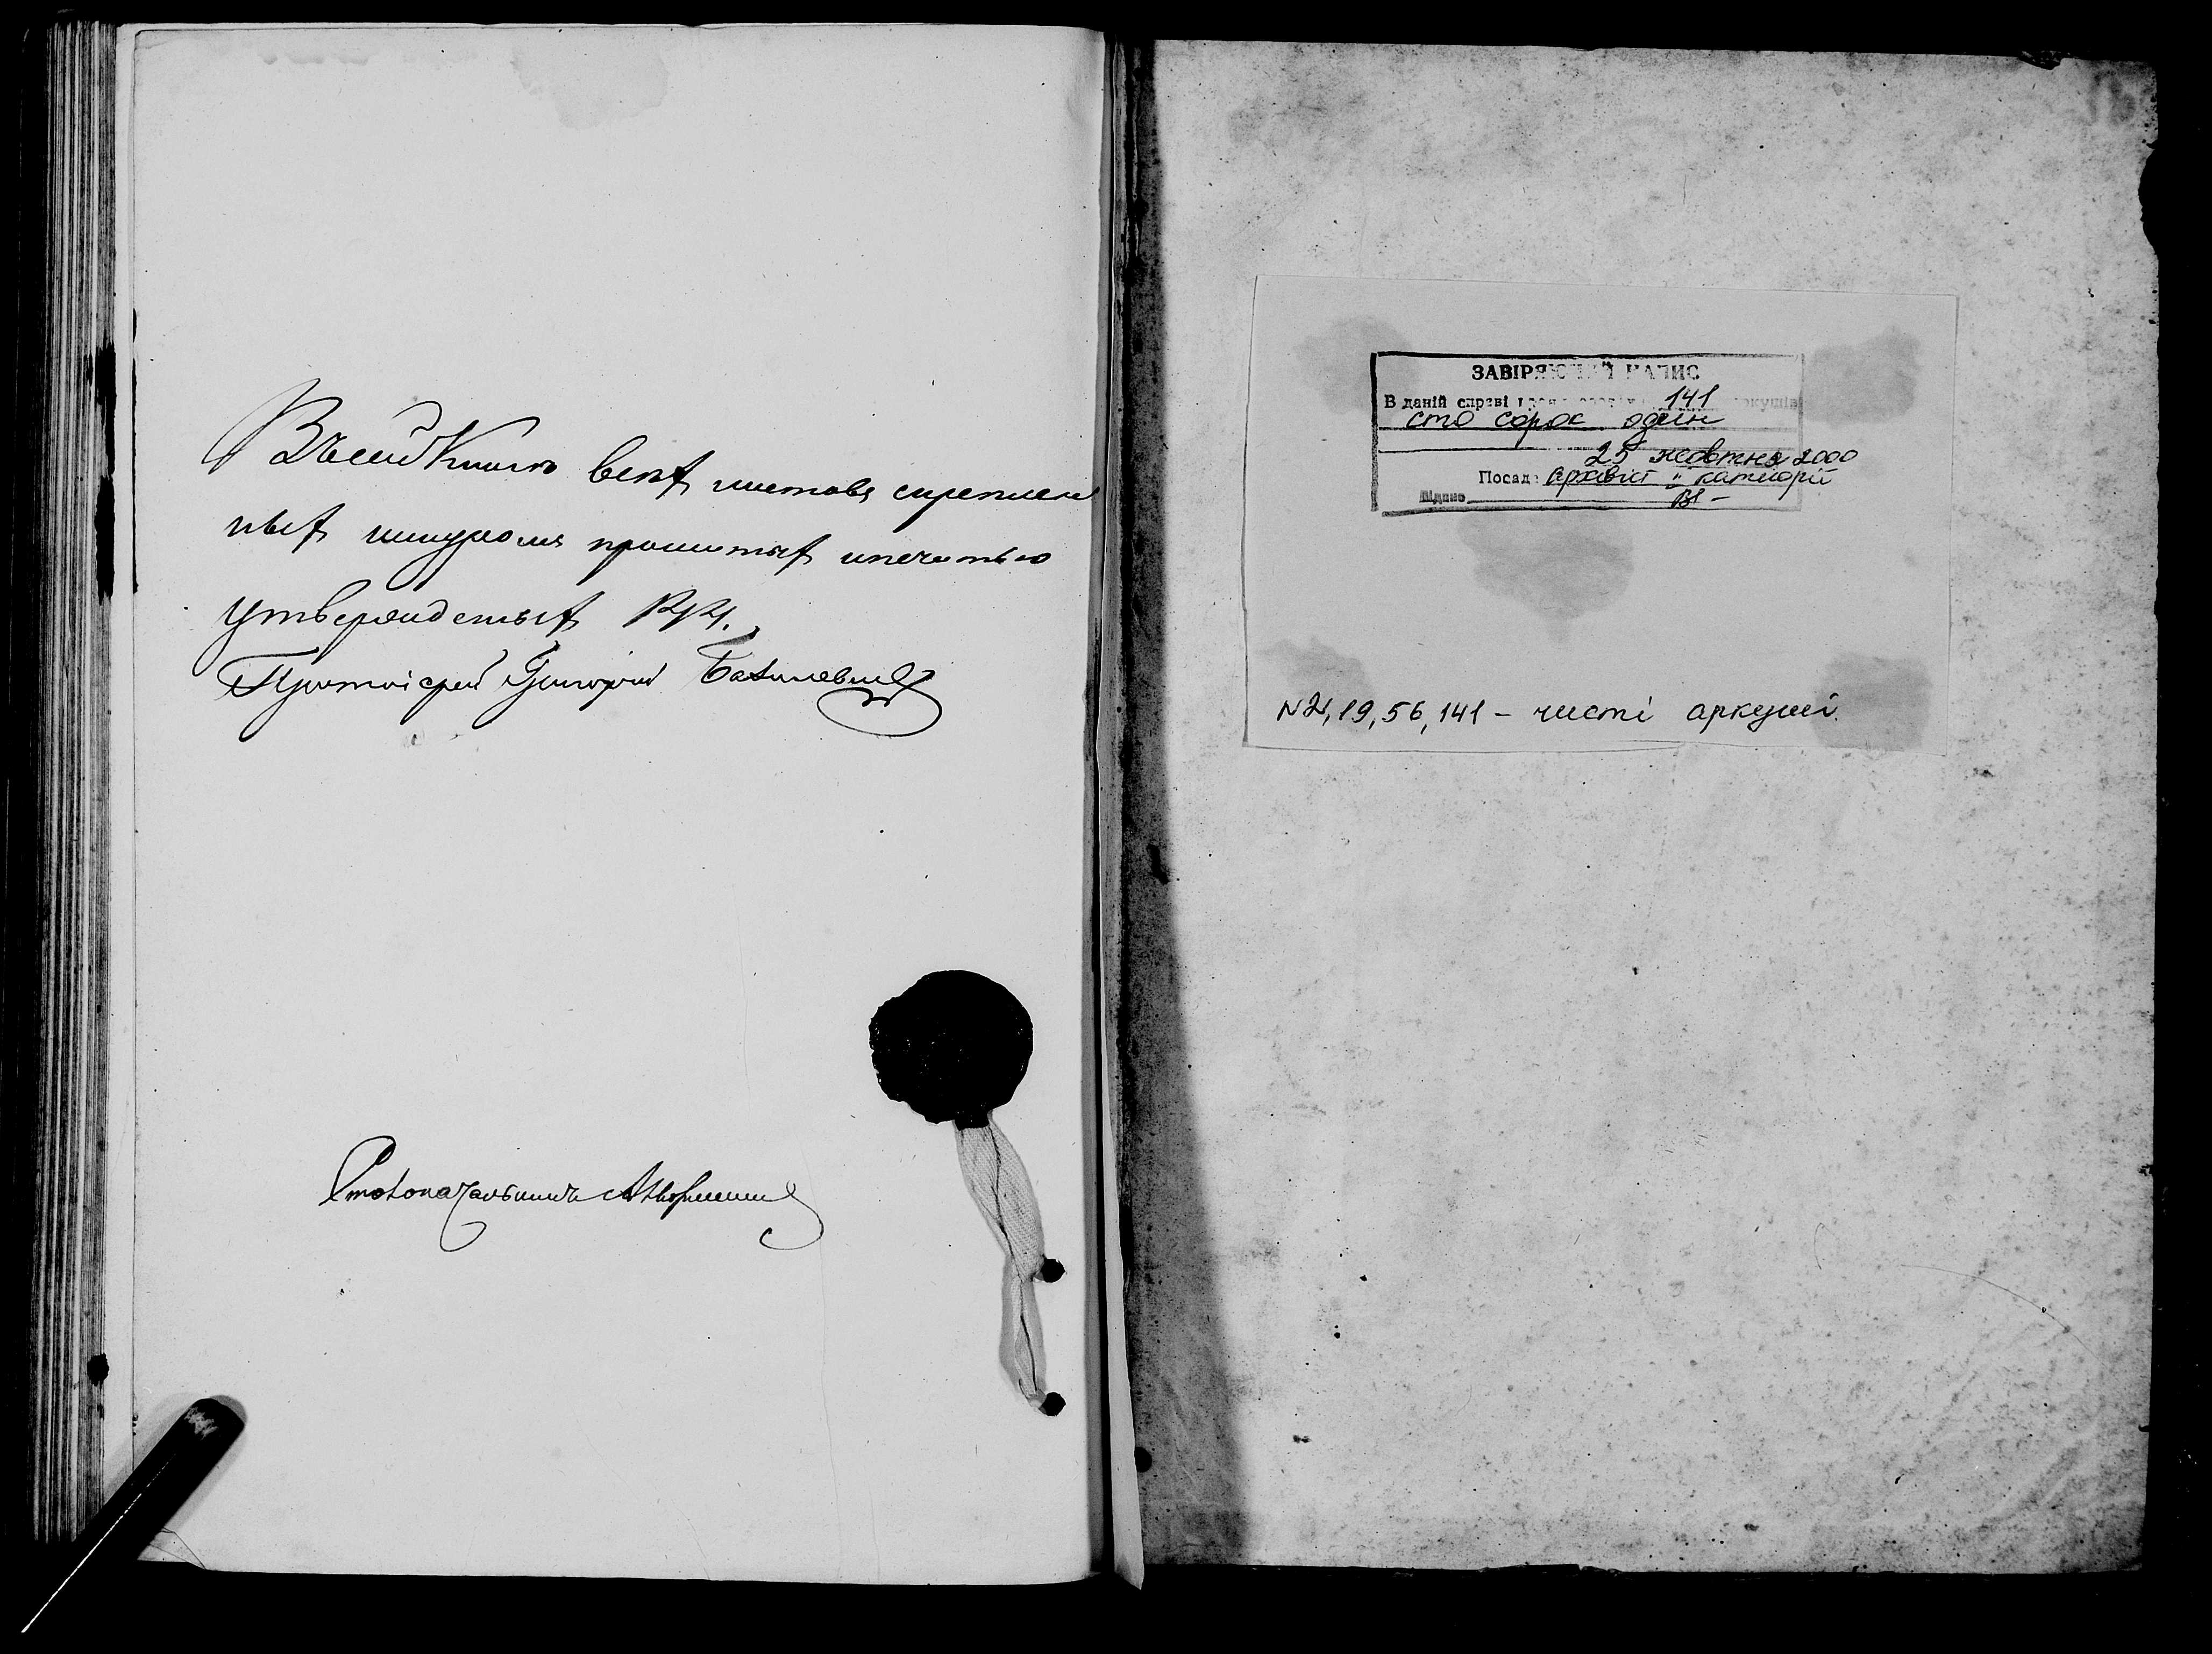 Въ сей Книгѣ всѣхъ листовъ скреплен
ныхъ шнуромъ прошитыхъ и печатью
утвержденыхъ 141.
Протоіерей Григорій
Столоначальникъ
ЗАВІРЯЮЧИЙ НАПИС
В даній справі 141 аркушів
сто сорок один
25 жовтня 2000
Посада архівіст II категорії
Підпис
N2, 19, 56, 141 – чисті аркуші.